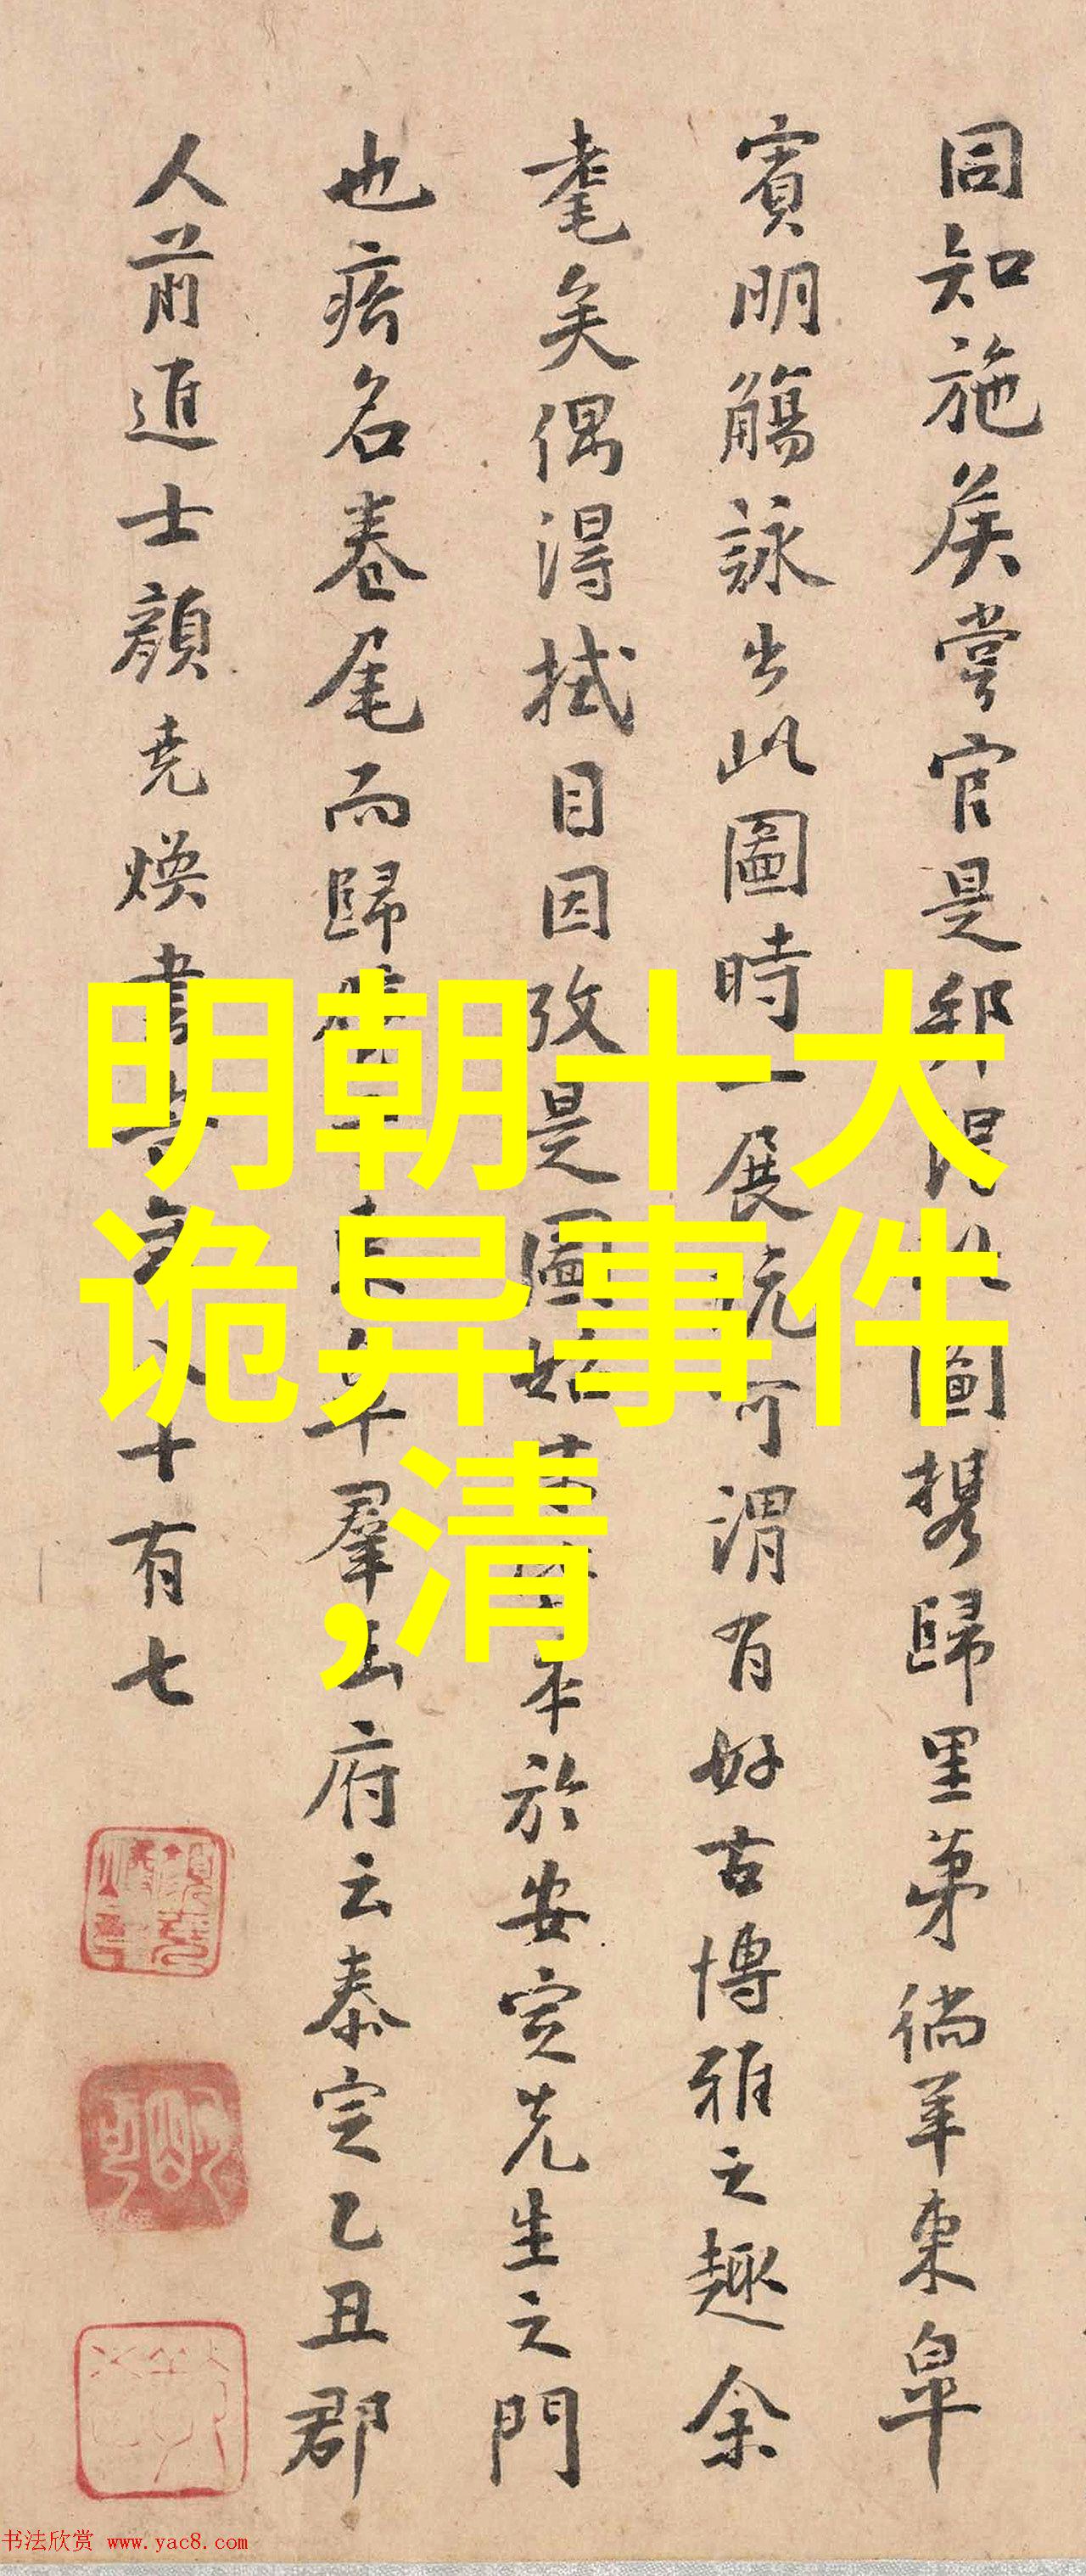 同知施矦嘗官是邦得此圖携歸里苐徜羊東皐
賓明觴詠出此圖時一展玩可謂有好古博雅之趣余
耄矣偶得拭目因攷是圖始本於安定先生之門
也名卷尾而歸年羣玉府云泰定乙丑郡
人前進士顔堯煥書八十有七
明朝十大
诡异事件
,清
书法欣赏 www.yac8.com